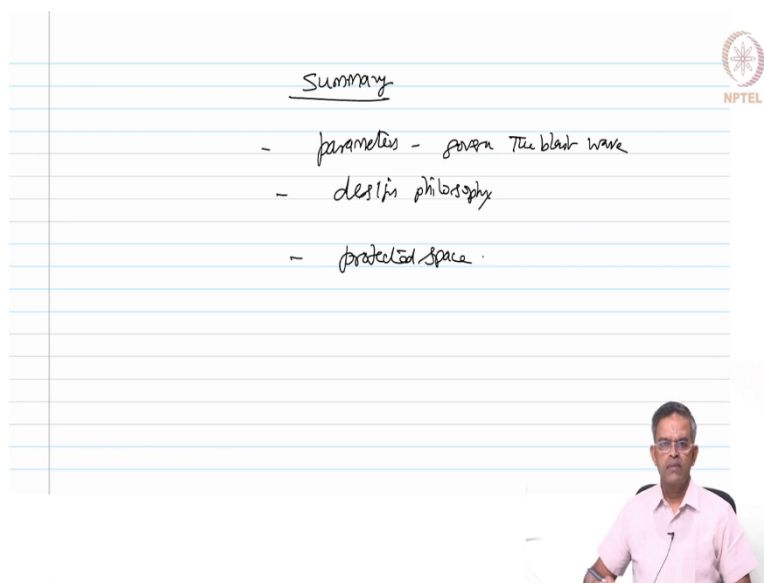 Summary
NPTEL
- parameters - govern The blast wave
- design philosophy
- protected space.